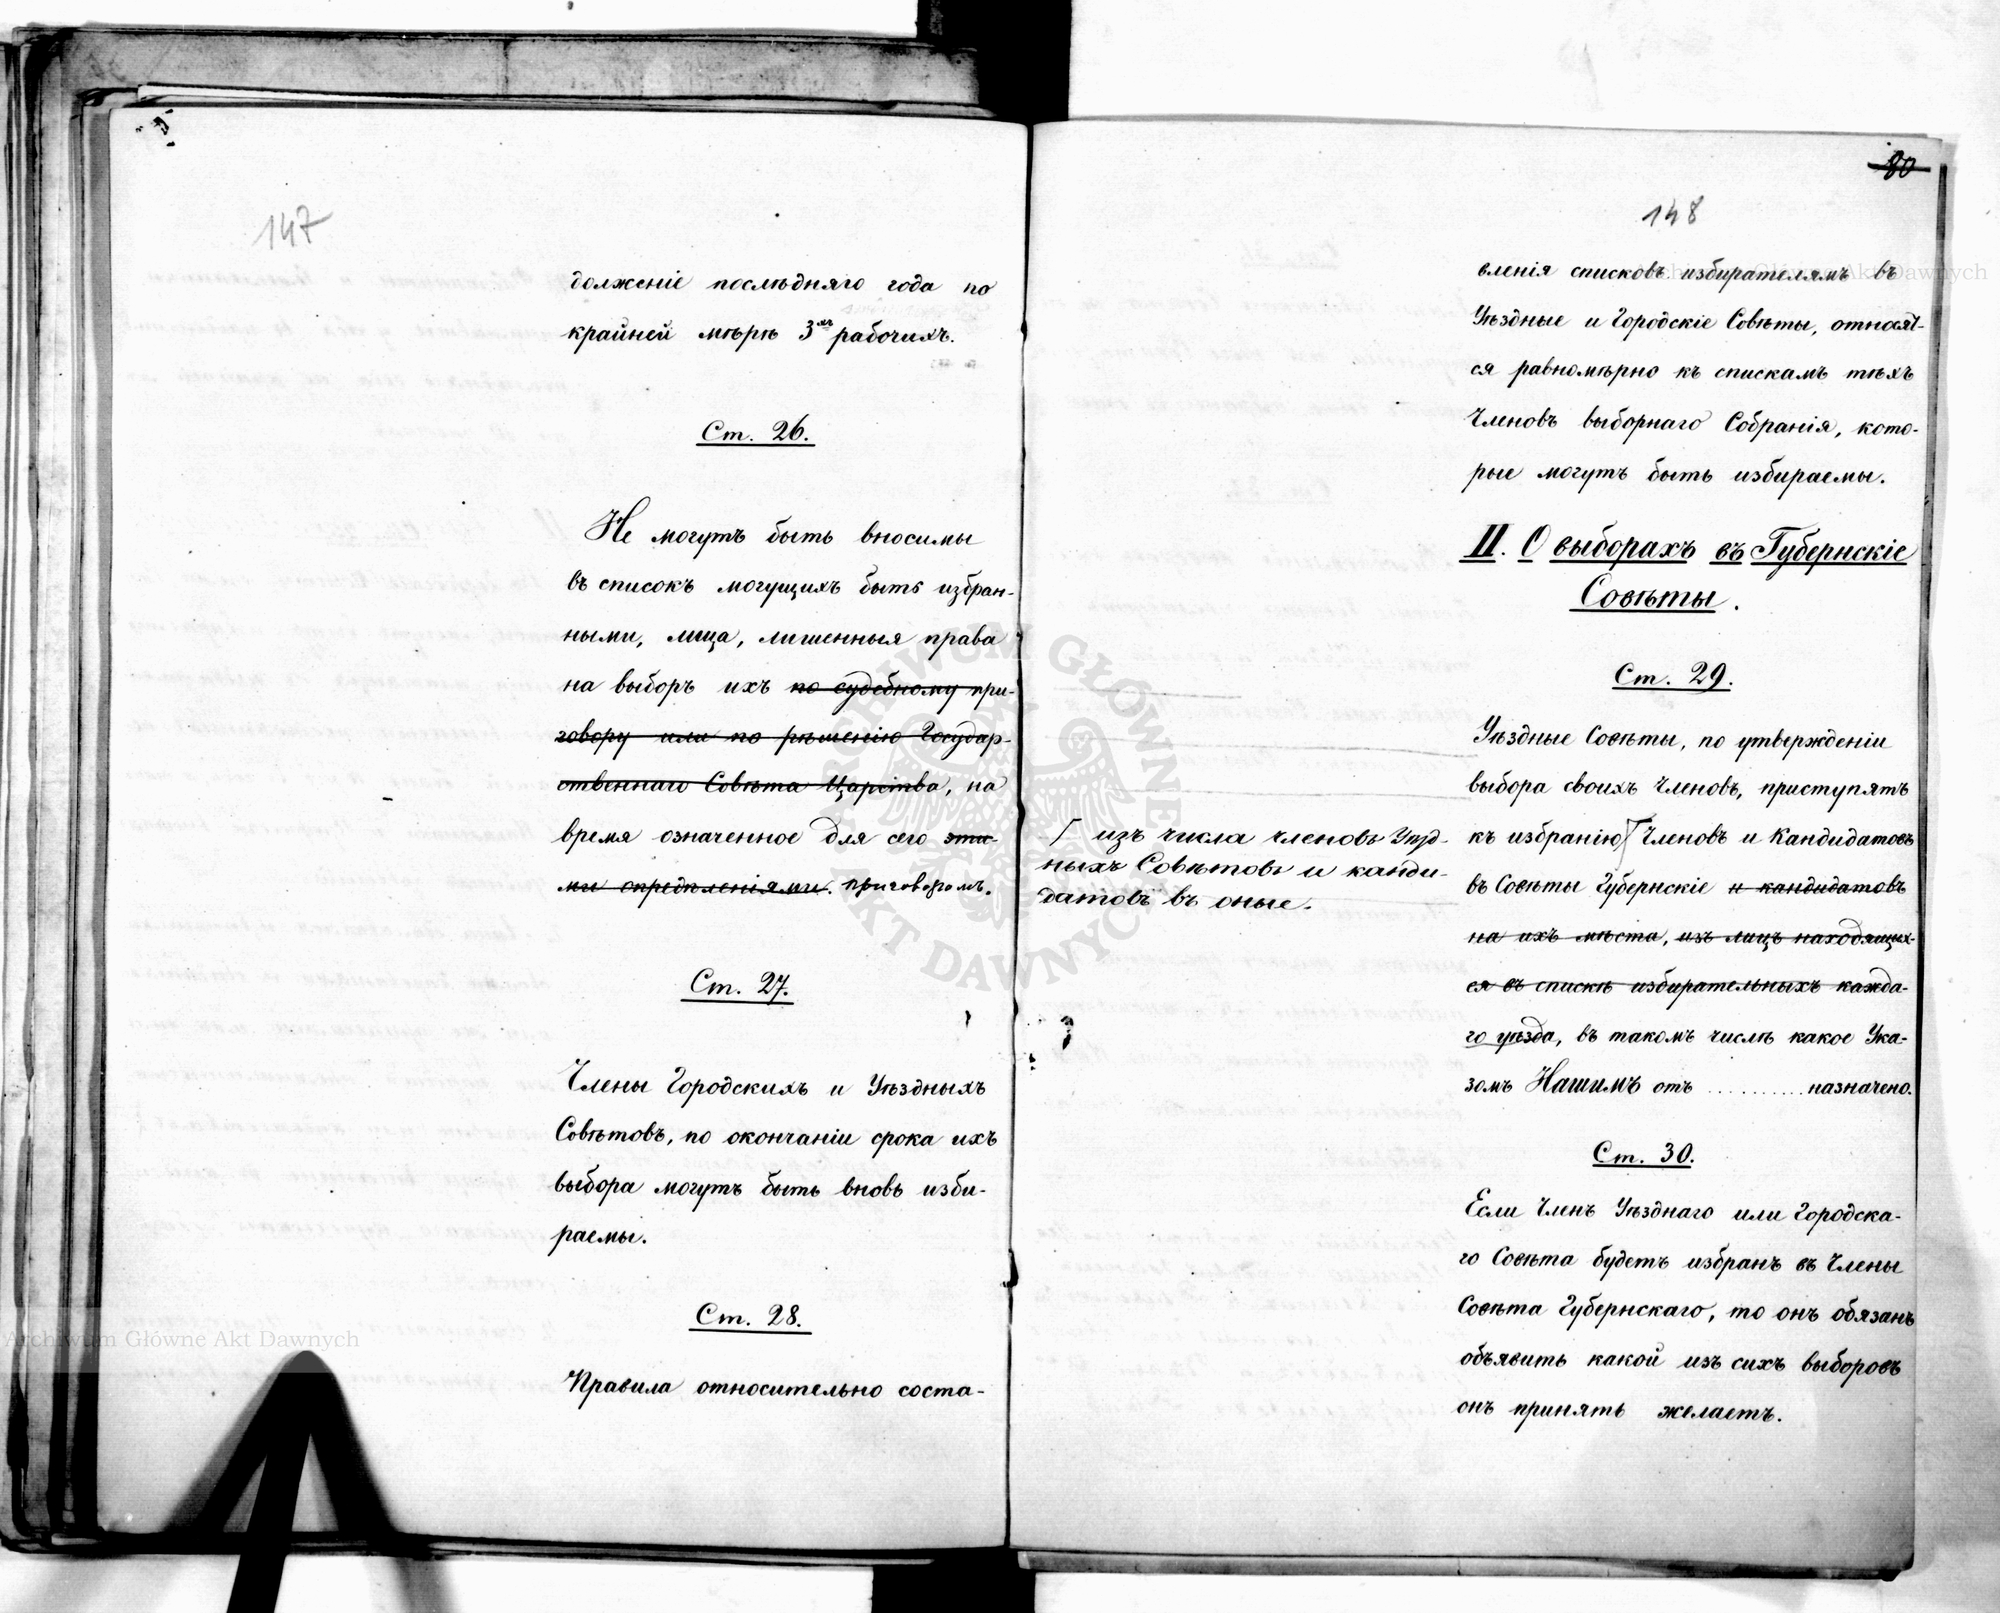 147
долженіе послѣдняго года по
крайней мѣрѣ 3хъ рабочихъ.
Ст. 26.
Не могутъ быть вносимы
въ списокъ могущихъ быть избран-
ными, лица, лишенныя права
на выборъ ихъ по судебному при-
говору или по рѣшенію Государ-
ственнаго Совѣта Царства, на
время означенное для сего эти-
ми опредѣленіями. приговоромъ.
Ст. 27.
Члены Городскихъ и Уѣздныхъ
Совѣтовъ, по окончаніи срока ихъ
выбора могутъ быть вновь изби-
раемы.
Ст. 28.
Правила относительно соста-
80
148
вленія списковъ избирателямъ въ
Уѣздные и Городскіе Совѣты, относят-
ся равномѣрно къ спискамъ тѣхъ
Членовъ выборнаго Собранія, кото-
рые могутъ быть избираемы.
II. О выборахъ въ Губернскіе
Совѣты.
Ст. 29.
Уѣздные Совѣты, по утвержденіи
выбора своихъ Членовъ, приступятъ
къ избранію Членовъ и Кандидатовъ
въ Совѣты Губернскіе и кандидатовъ
на ихъ мѣста, изъ лицъ находящих-
ся въ спискѣ избирательныхъ кажда-
го уѣзда, въ такомъ числѣ какое Ука-
зомъ Нашимъ отъ .......... назначено.
изъ числа членовъ Уѣзд-
ныхъ Совѣтовъ и канди-
датовъ въ оные.
Ст. 30.
Если Членъ Уѣзднаго или Городска-
го Совѣта будетъ избранъ въ Члены
Совѣта Губернскаго, то онъ обязанъ
объявить какой изъ сихъ выборовъ
онъ принять желаетъ.
Archiwum Główne Akt Dawnych
Archiwum Główne Akt Dawnych
ARCHIWUM GŁÓWNE AKT DAWNYCH